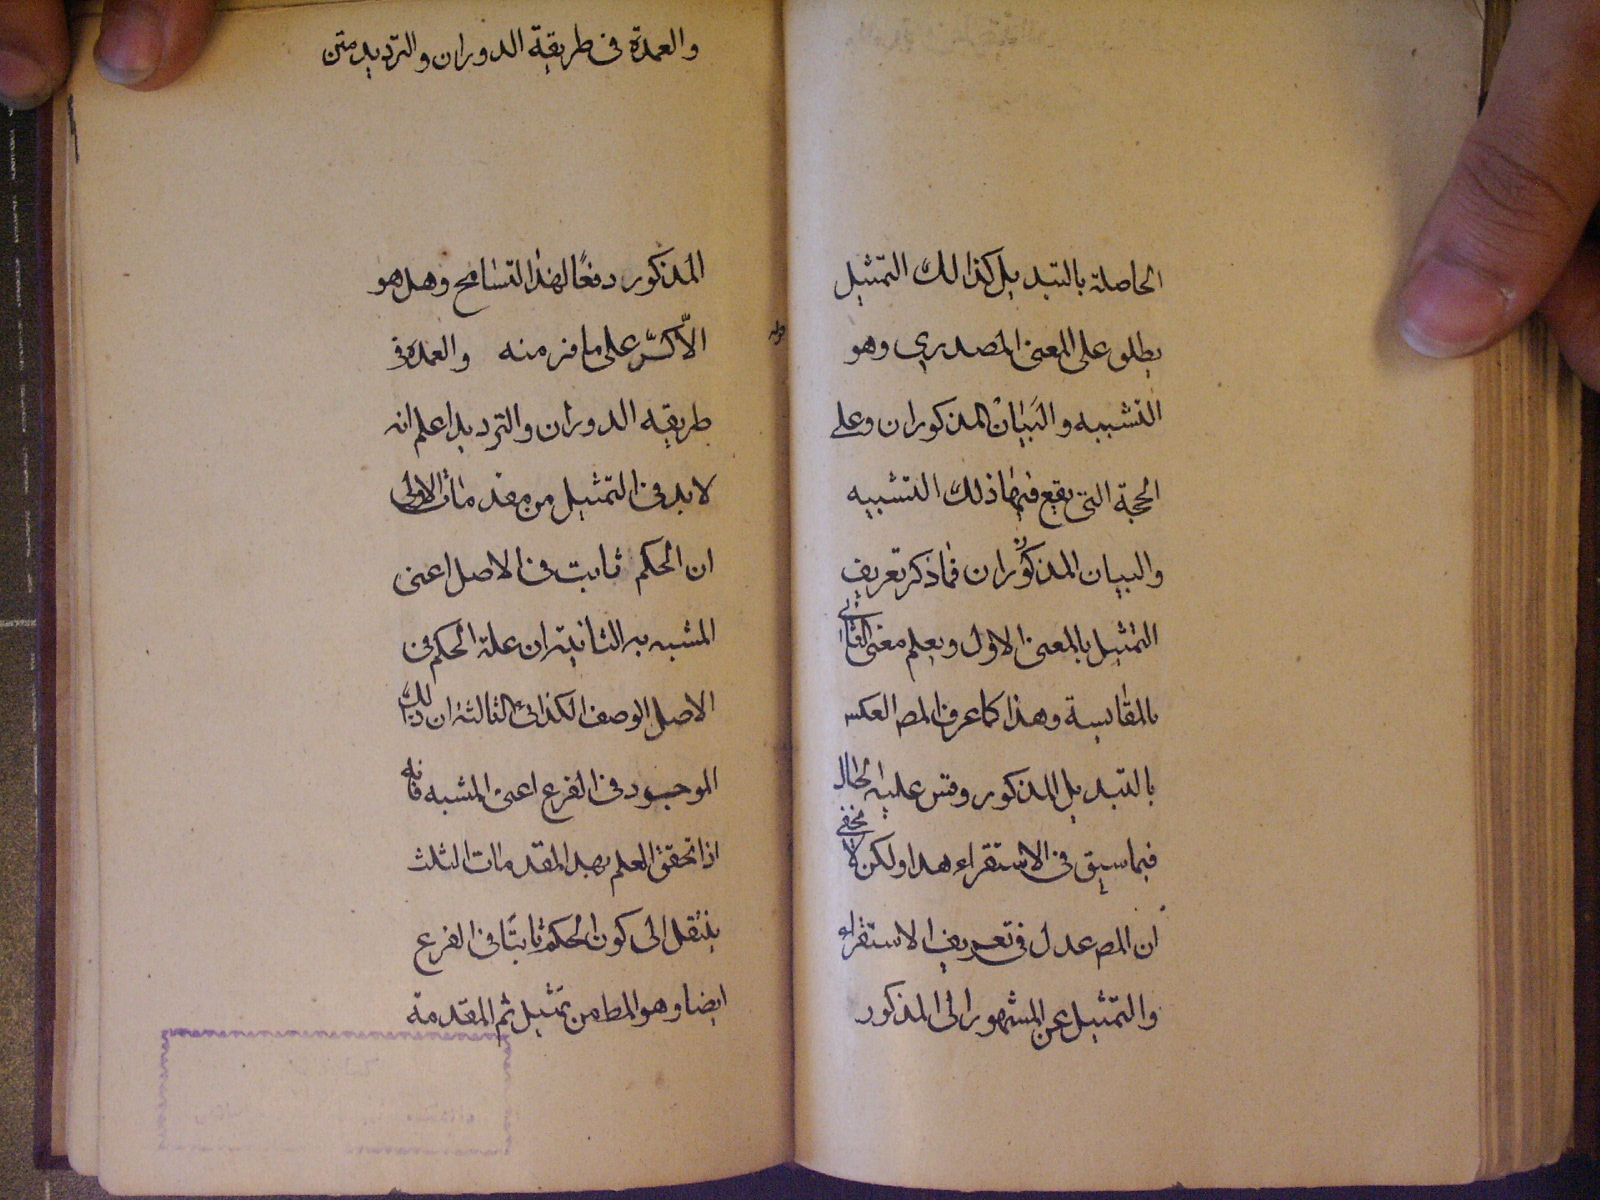 الحاصلة بالتبديل كذالك التمثيل
يطلق على المعنى المصدري وهو
التشبيه والبيان المذكوران وعلى
الحجة التى يقع فيها ذلك التشبيه
والبيان المذكوران فماذكر تعريف
التمثيل بالمعنى الاول ويعلم معنى الثانى
بالمقايسة وهذا كما عرف المص العكس
بالتبديل المذكور وقس عليه الحال
فيما سبق فى الاستقراء هذا ولكن لا يخفى
ان المص عدل فى تعريف الاستقراء
والتمثيل عن المشهور الى المذكور
والعمدة فى طريقة الدوران والترديد متن
المذكور دفعًا لهذا التسامح وهل هو
الّا كرّ على ما فر منه والعمدة فى
قوله
طريقه الدوران والترديد اعلم انه
لابد فى التمثيل من مقدمات الاولى
ان الحكم ثابت فى الاصل اعنى
المشبه به الثانية ان علة الحكم فى
الاصل الوصف الكذائى الثالثة ان ذلك
الموجود فى الفرع اعنى المشبه فانه
اذا تحقق العلم بهذ المقدمات الثلث
ينتقل الى كون الحكم ثابتًا فى الفرع
ايضا وهو المط من تمثيل ثم المقدمة